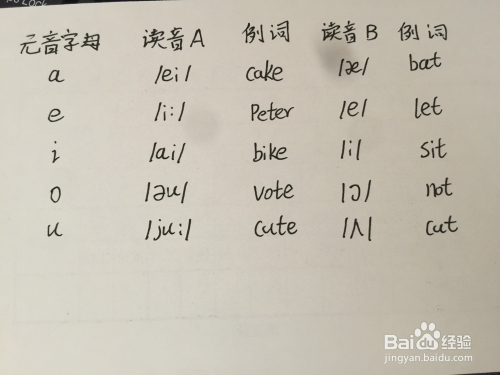 元音字母 读音A 例词 读音B 例词
a /ei/ cake /æ/ bat
e /i:/ Peter /e/ let
i /ai/ bike /i/ sit
o /əu/ vote /ɔ/ not
u /ju:/ cute /ʌ/ cut
Baidu经验
jingyan.baidu.com